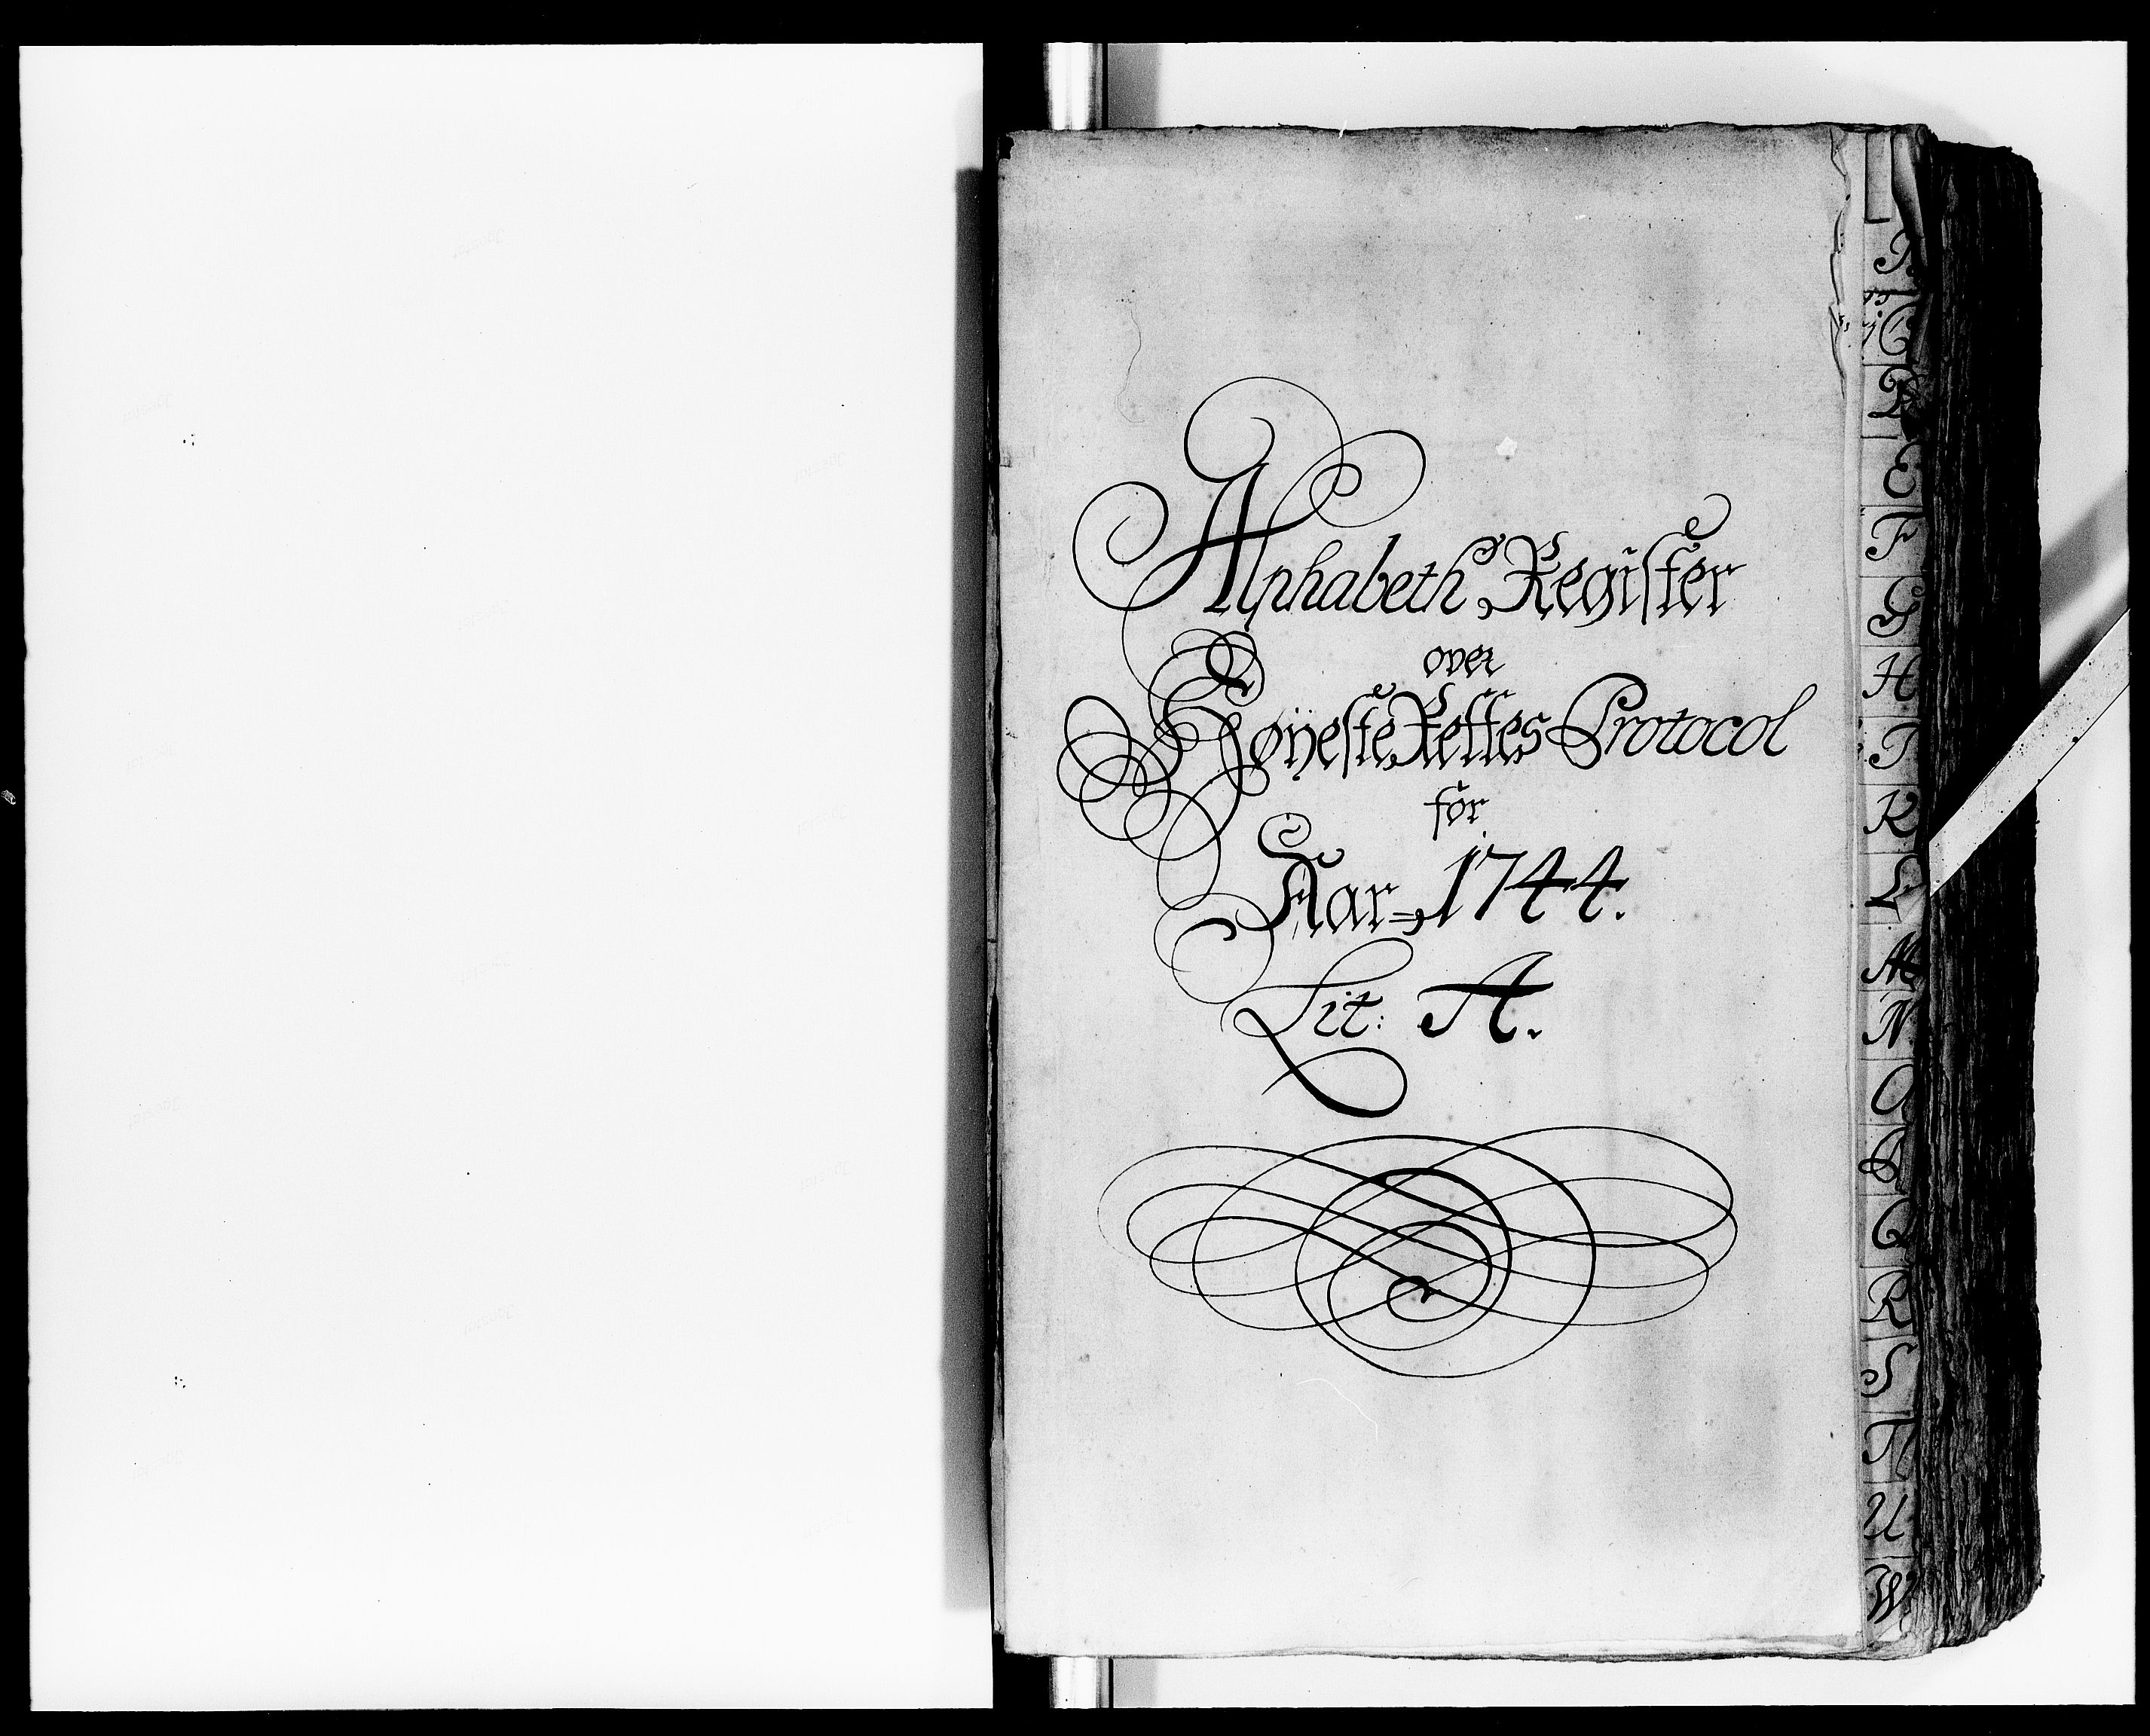 Alphabeth Register
over
HøyesteRettes Protocol
for
Aar 1744.
Lit: A.
C
D
E
F
G
H
I
K
L
M
N
O
P
Q
R
S
T
U
W